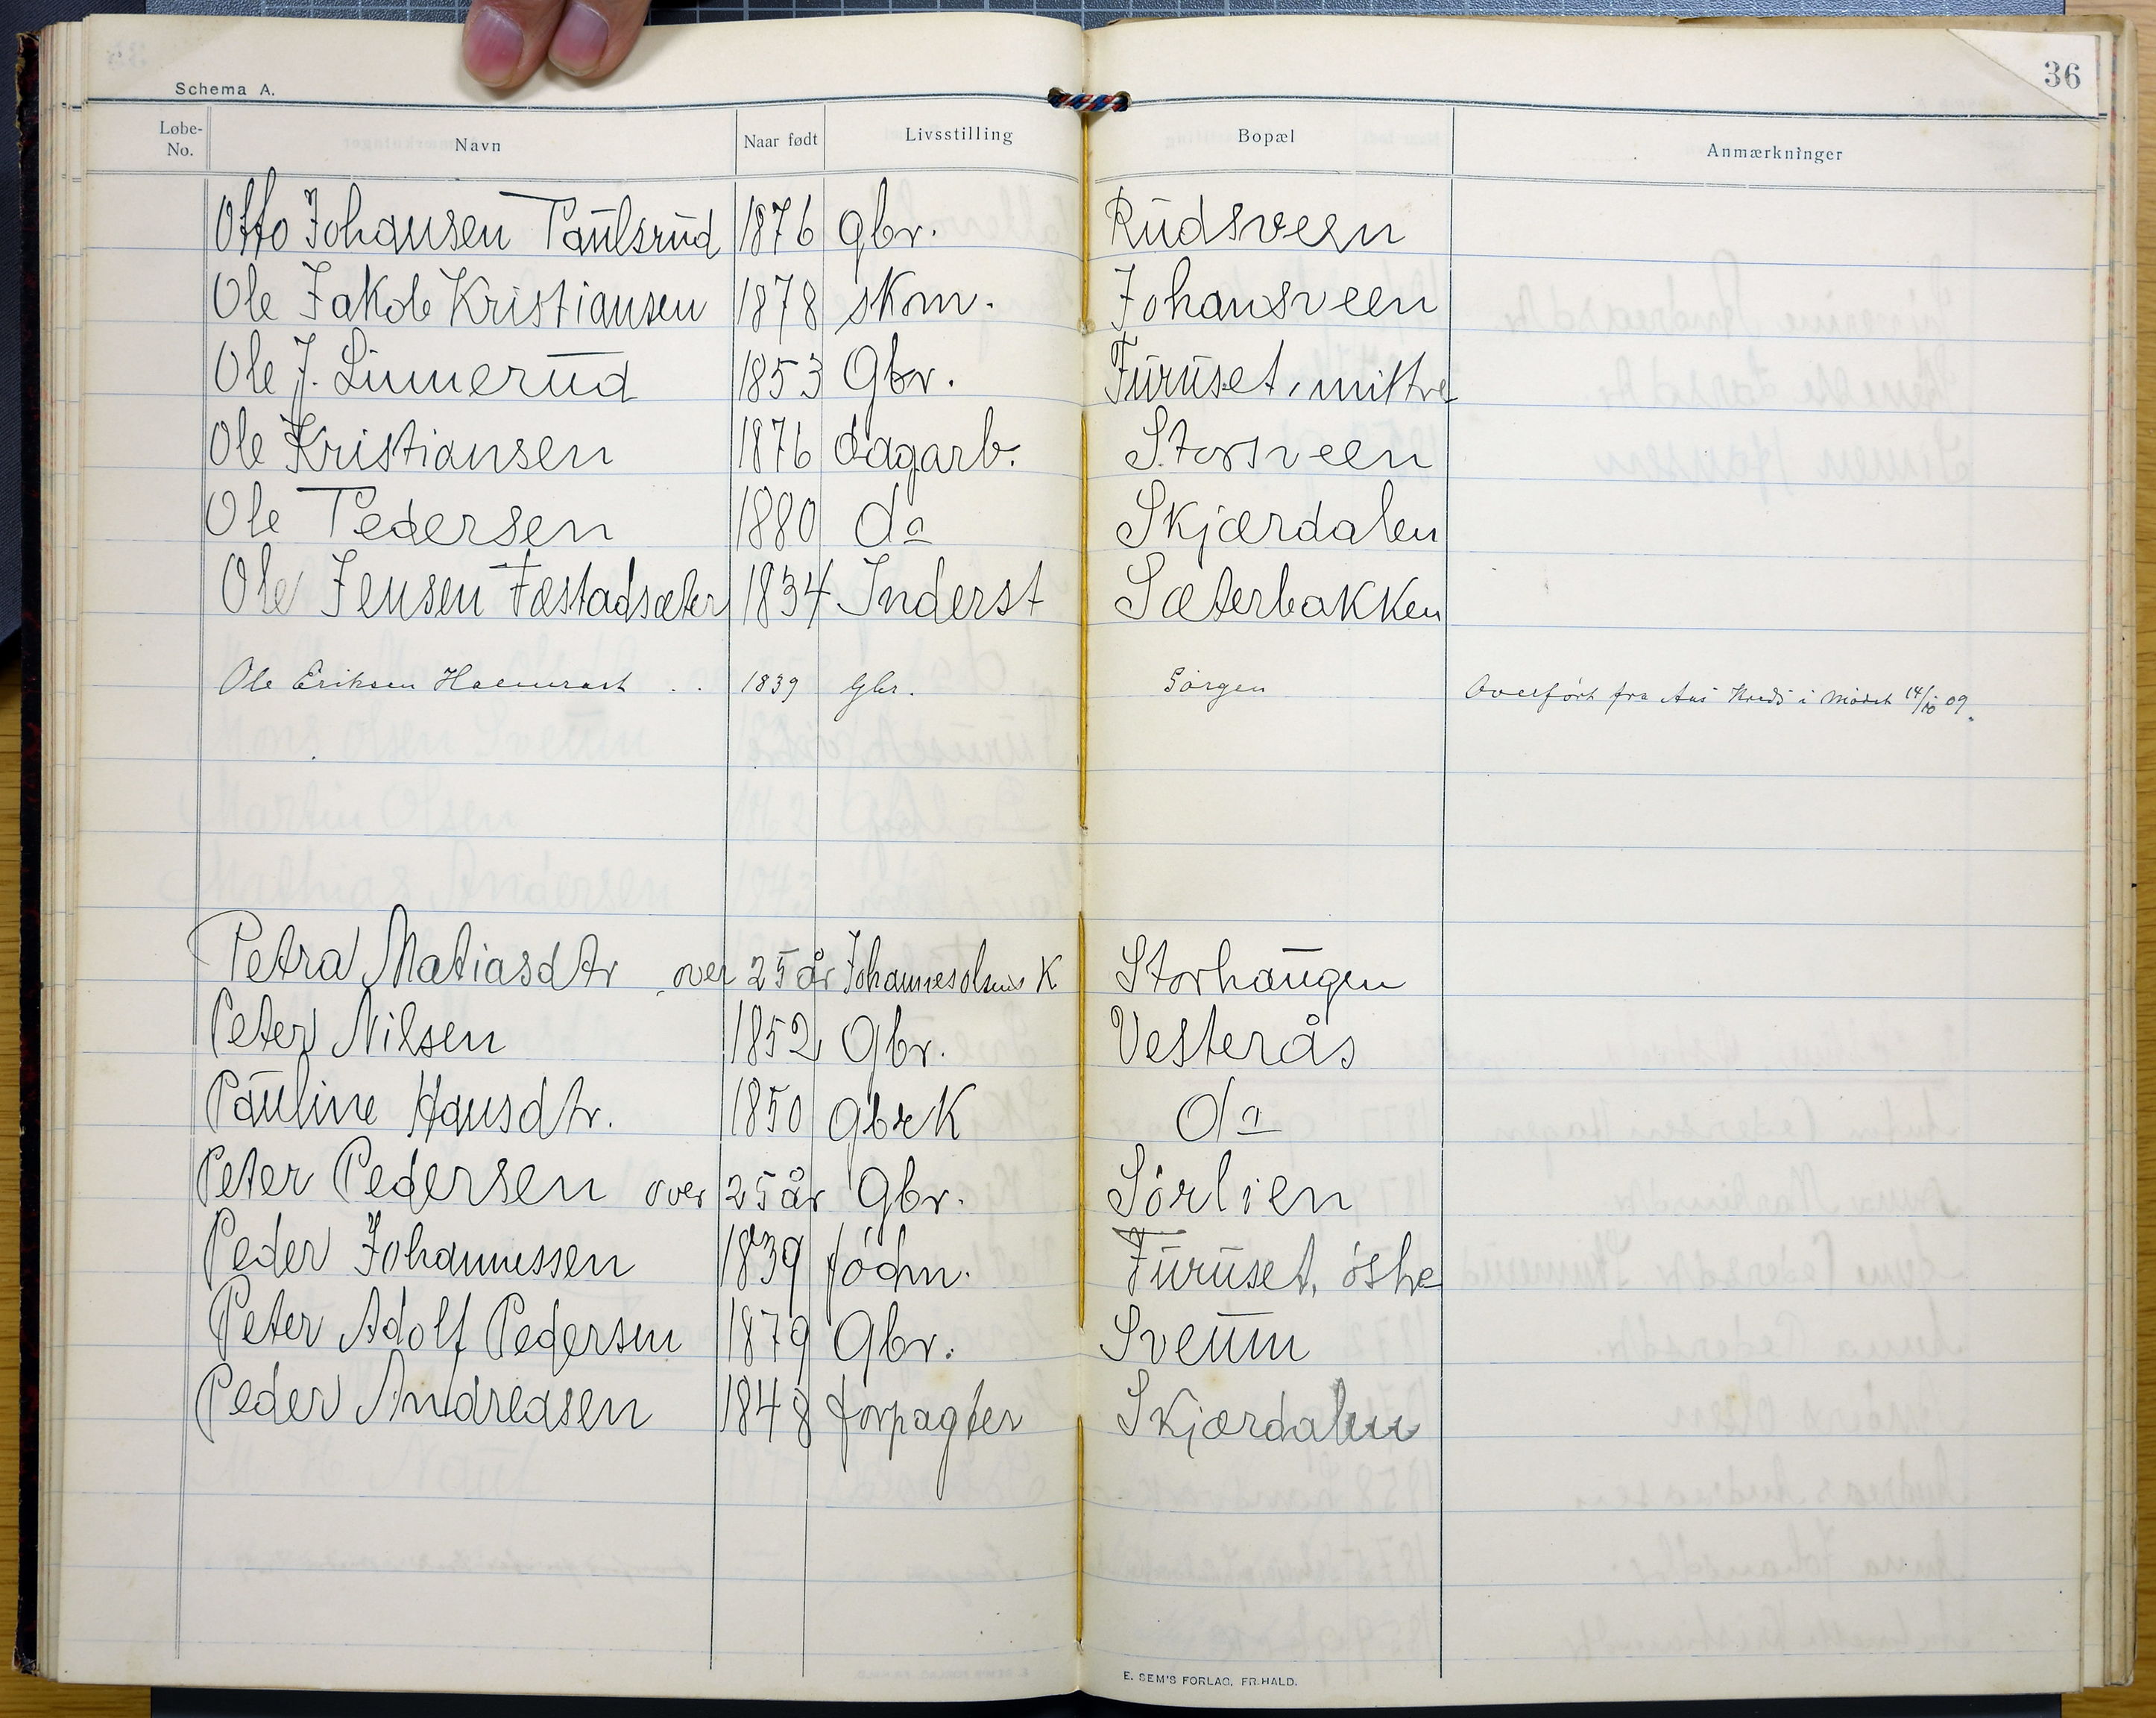 36
Schema A.
Løbe-No. Navn Naar født Livsstilling Bopæl Anmærkninger
Otto Johansen Paulsrud 1876 gbr. Rudsveen
Ole Jakob Kristiansen 1878 skom. Johansveen
Ole J. Linnerud 1853 Gbr. Furuset, mittre
Ole Kristiansen 1876 dagarb. Storsveen
Ole Pedersen 1880 do Skjærdalen
Ole Jensen Fæstadsæter 1834 Inderst Sæterbakken
Ole Eriksen 1839 Gbr. Börgen Overfört fra Aas Kreds i Mödet 14/10 09.
Petra Matiasdtr over 25 år Johannesolsens K Storhaugen
Peter Nilsen 1852 Gbr. Vesterås
Pauline Hansdtr. 1850 gbrK do
Peter Pedersen over 25 år Gbr. Sörlien
Peder Johannessen 1839 födm. Furuset, östre
Peter Adolf Pedersen 1879 Gbr. Sveum
Peder Andreasen 1848 forpagter Skjærdalen
E. SEM'S FORLAG, FR.HALD.